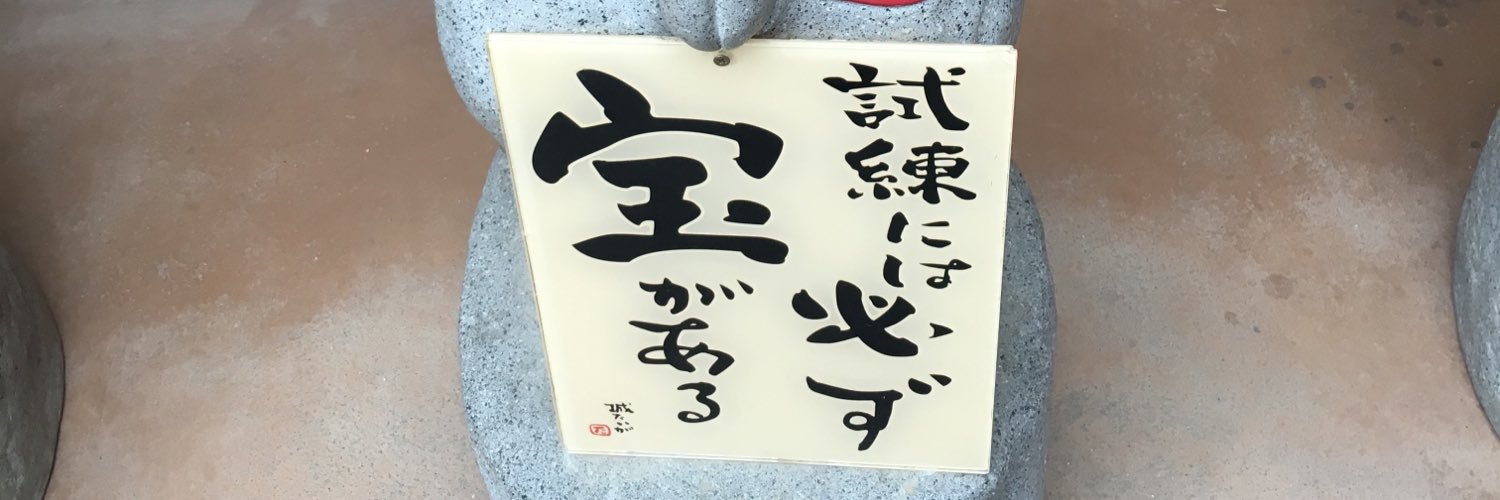 試練には必ず
宝がある
城たいが